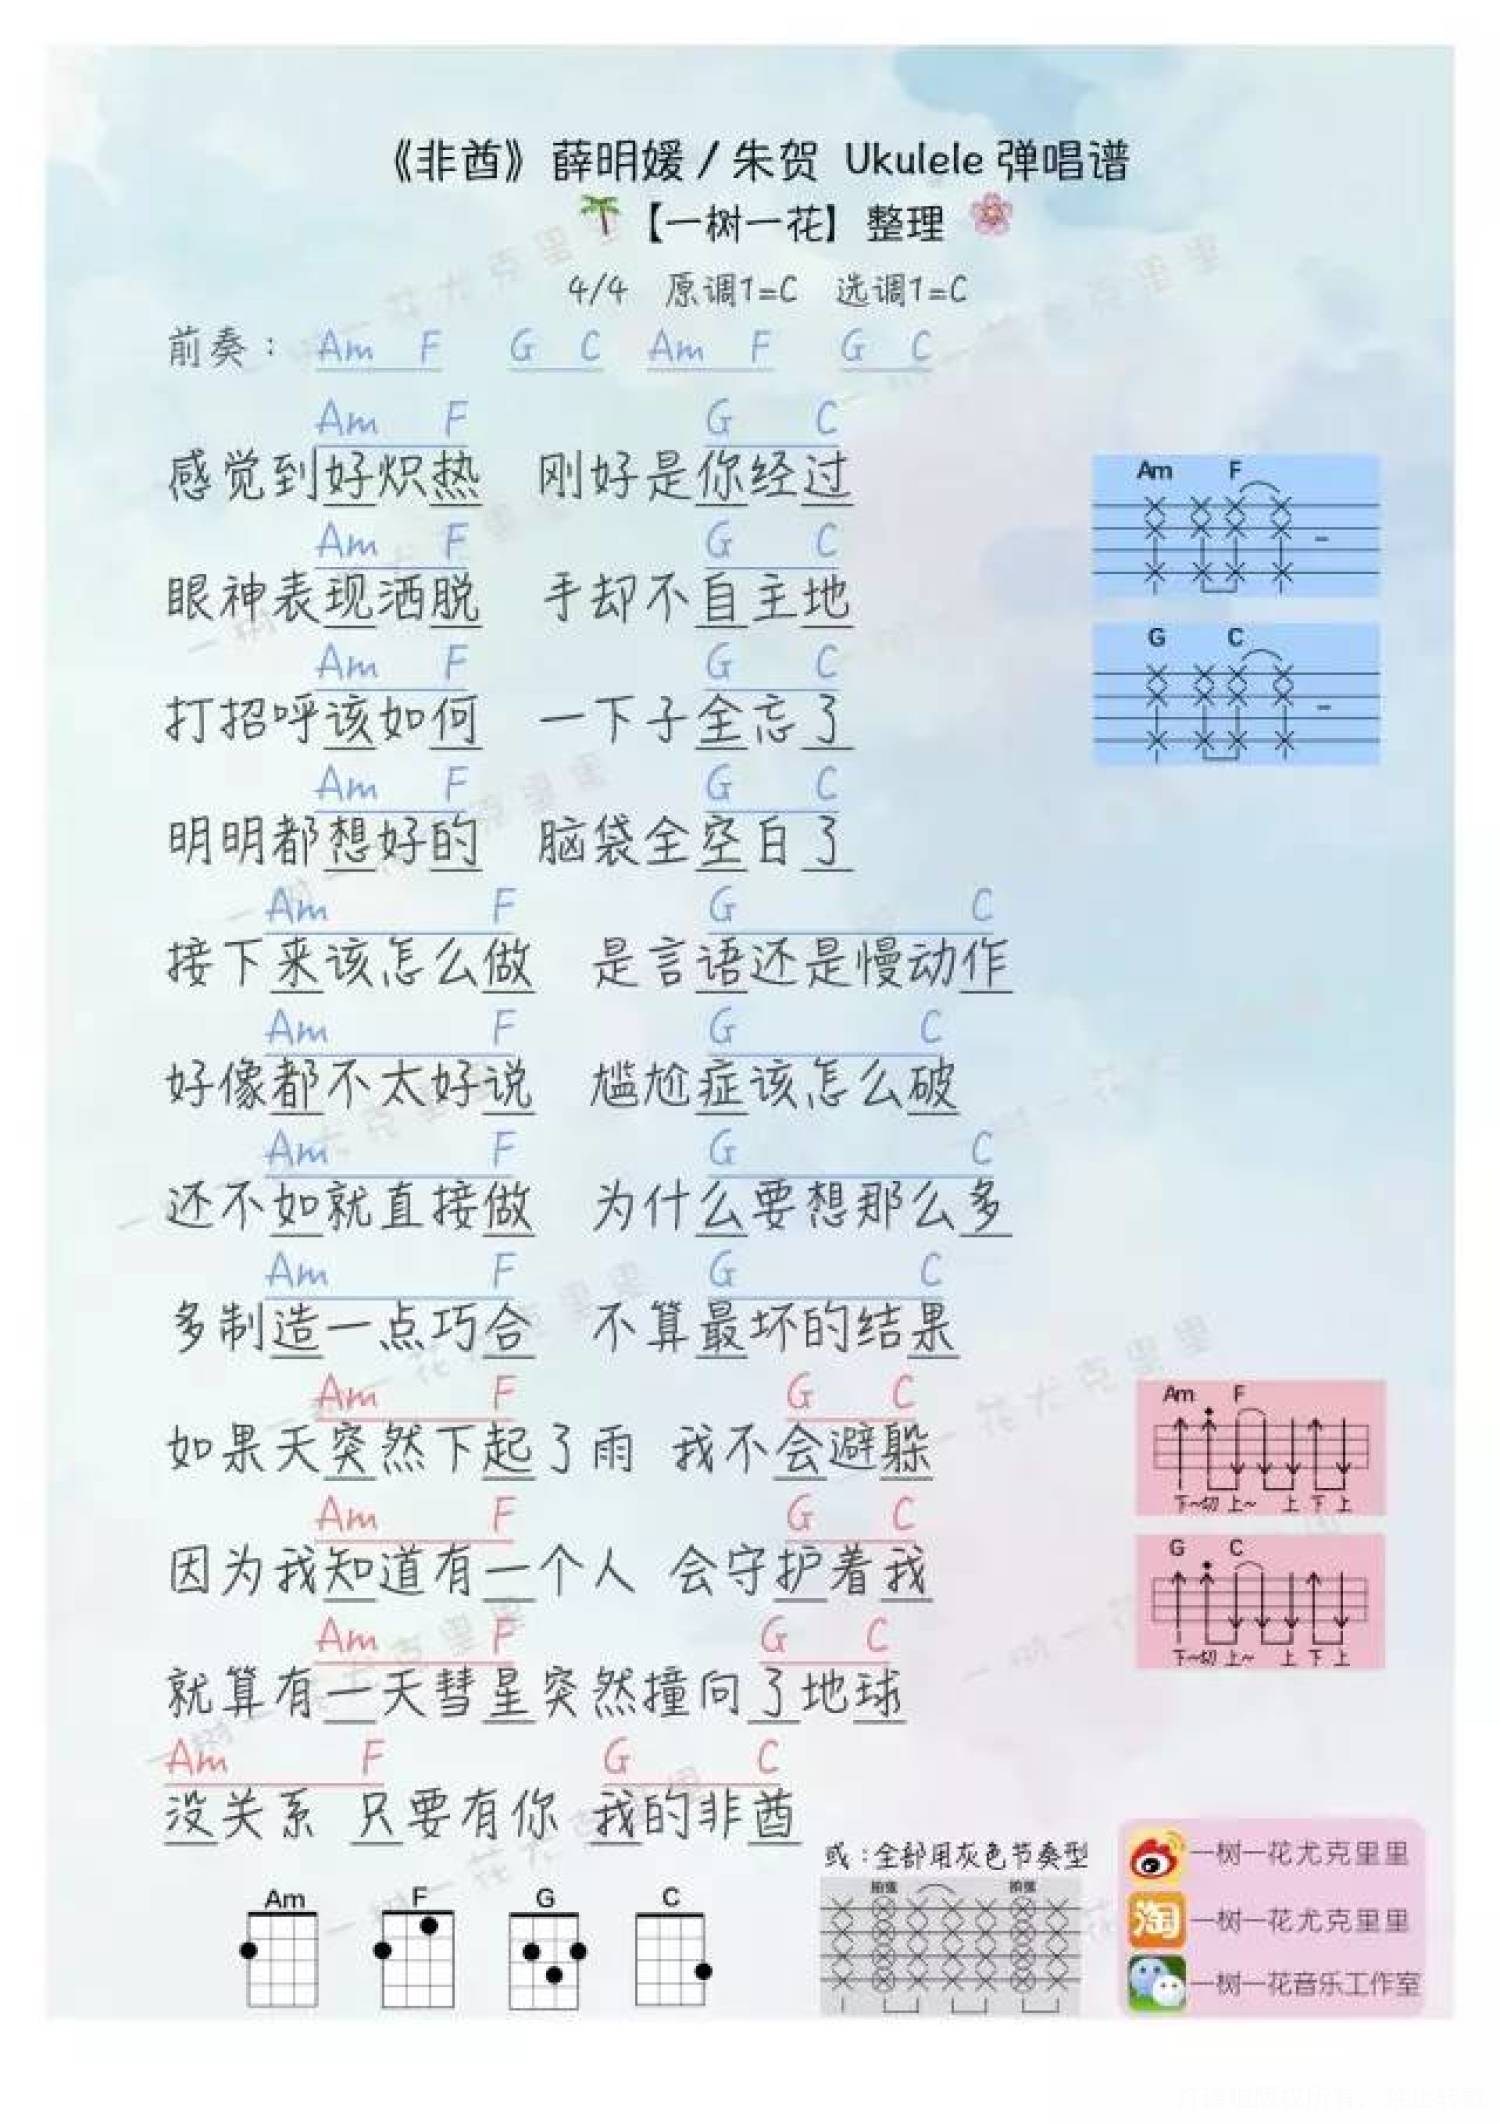 《非酋》薛明媛/朱贺 Ukulele 弹唱谱
【一树一花】整理
4/4 原调1=C 选调1=C
前奏： Am F G C Am F G C
Am F G C
感觉到好炽热 刚好是你经过
Am F G C
眼神表现洒脱 手却不自主地
Am F G C
打招呼该如何 一下子全忘了
Am F G C
明明都想好的 脑袋全空白了
Am F G C
接下来该怎么做 是言语还是慢动作
Am F G C
好像都不太好说 尴尬症该怎么破
Am F G C
还不如就直接做 为什么要想那么多
Am F G C
多制造一点巧合 不算最坏的结果
Am F G C
如果天突然下起了雨 我不会避躲
Am F G C
因为我知道有一个人 会守护着我
Am F G C
就算有一天彗星突然撞向了地球
Am F G C
没关系 只要有你 我的非酋
Am F
G C
Am F
下~切 上~ 上 下 上
G C
下~切 上~ 上 下 上
Am F G C
或：全部用灰色节奏型
拍弦 拍弦
一树一花尤克里里
淘 一树一花尤克里里
一树一花音乐工作室